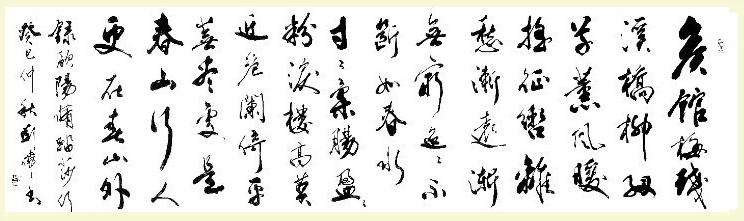 矦館梅殘
溪橋柳細
草薰風暖
搖征轡離
愁漸遠漸
無窮迢〻不
斷如春水
寸〻柔腸盈〻
粉淚樓高莫
近危闌倚平
蕪盡處是
春山行人
更在春山外
錄歐陽脩踏莎行
癸巳仲秋劉書